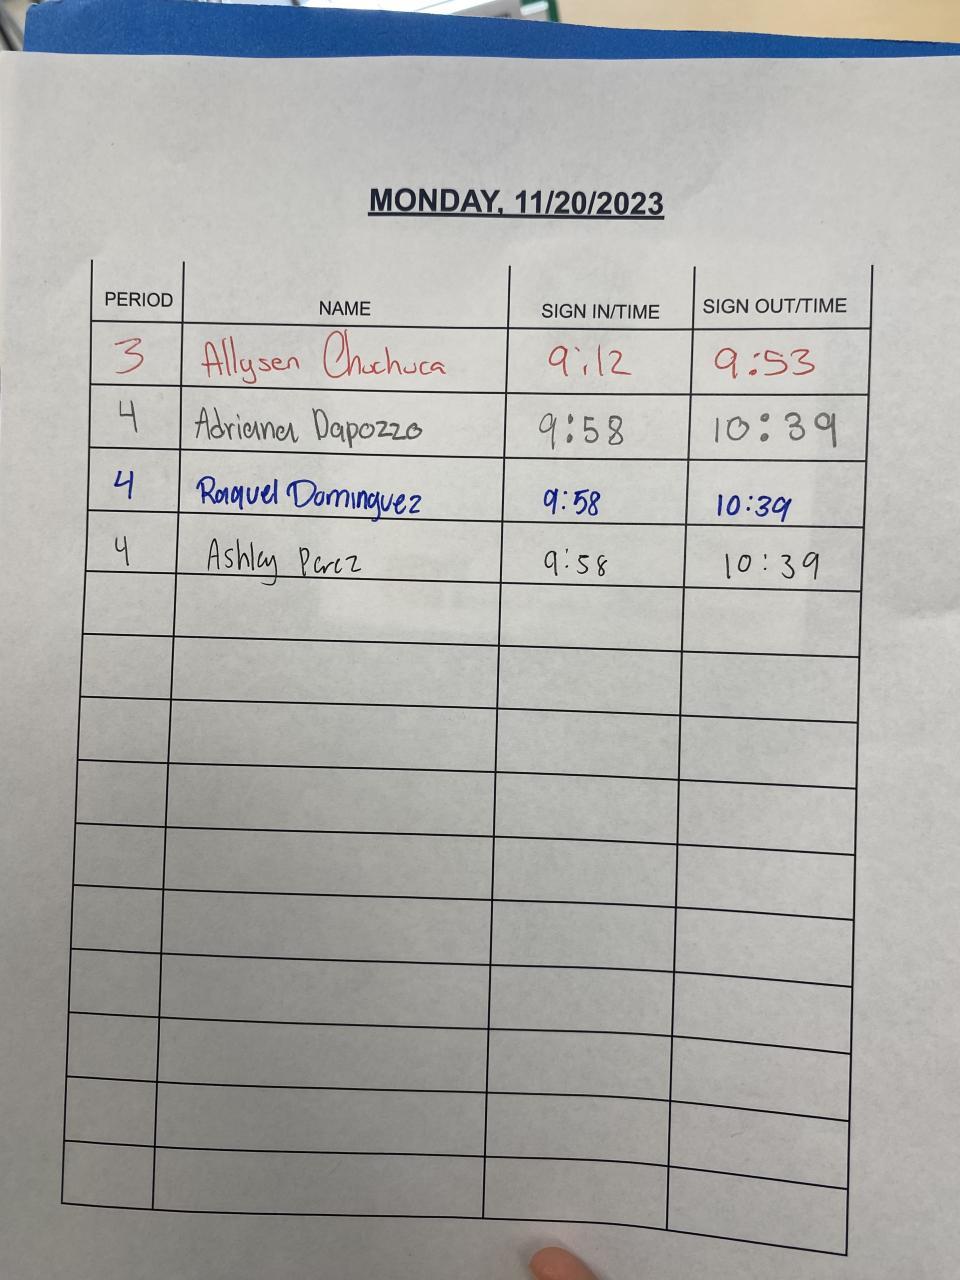 MONDAY, 11/20/2023
PERIOD NAME SIGN IN/TIME SIGN OUT/TIME
3 Allysen Chuchuca 9:12 9:53
4 Adriana Dapozzo 9:58 10:39
4 Raquel Dominguez 9:58 10:39
4 Ashley Perez 9:58 10:39